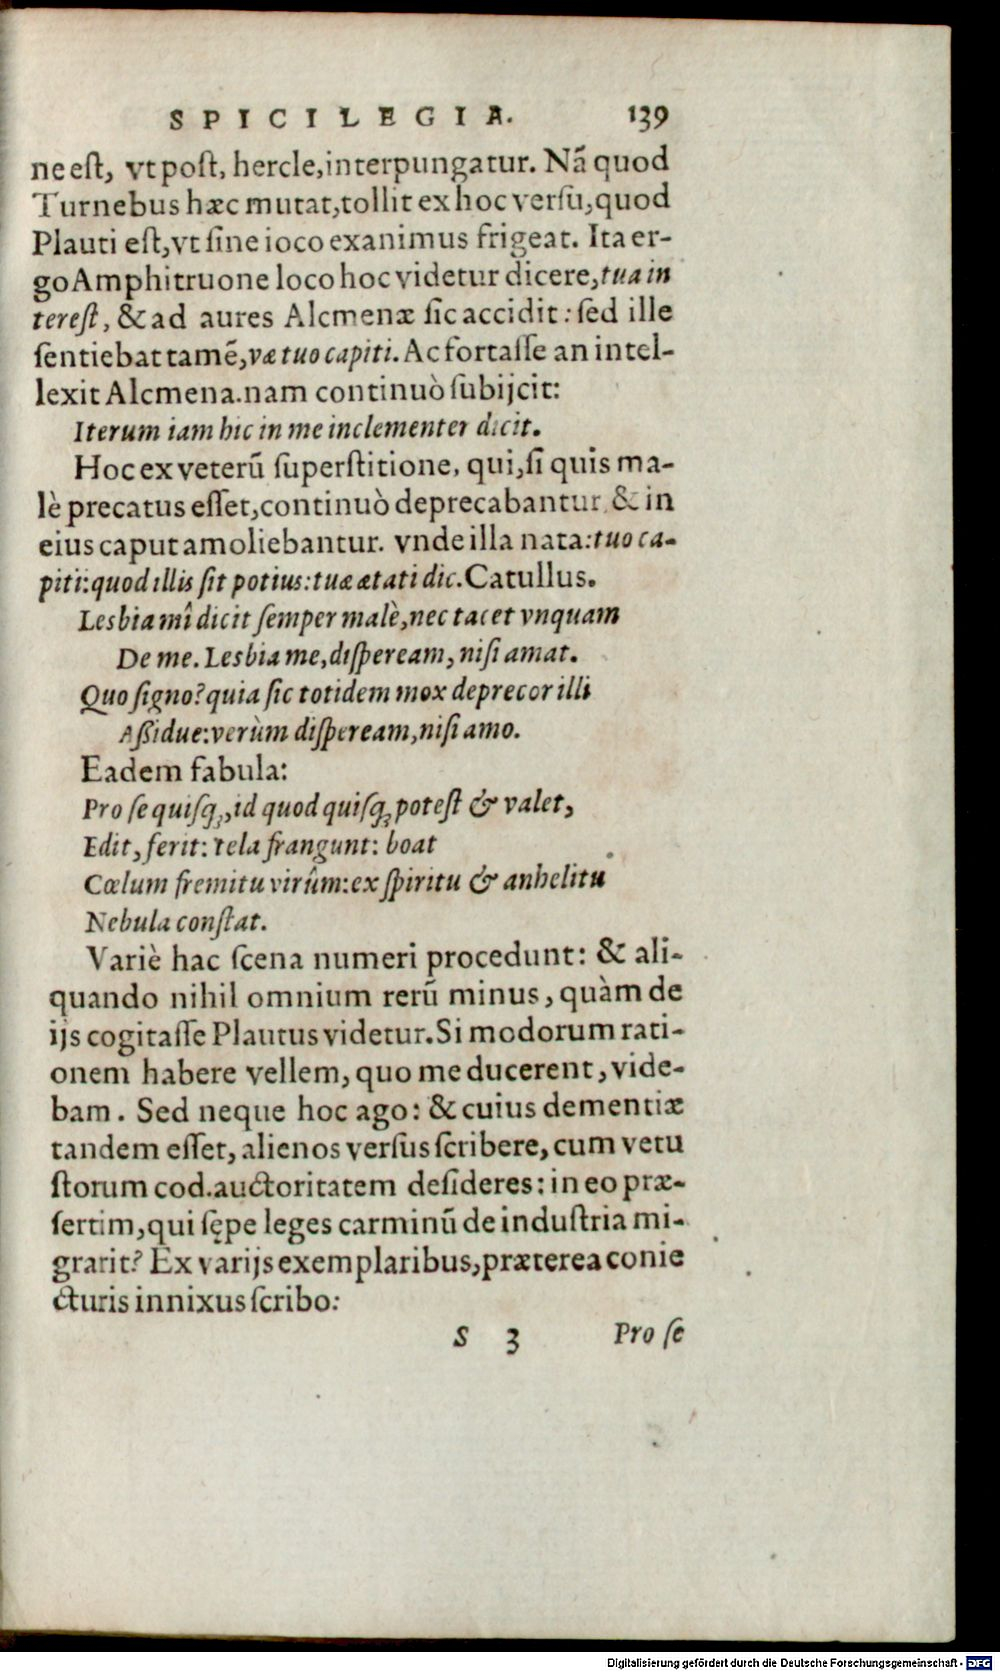 SPICILEGIA. 139
ne est, vt post, hercle, interpungatur. Nã quod
Turnebus hæc mutat, tollit ex hoc versu, quod
Plauti est, vt sine ioco exanimus frigeat. Ita er-
go Amphitruone loco hoc videtur dicere, tua in
terest, & ad aures Alcmenæ sic accidit: sed ille
sentiebat tamẽ, væ tuo capiti. Ac fortasse an intel-
lexit Alcmena. nam continuò subijcit:
Iterum iam hic in me inclementer dicit.
Hoc ex veterũ superstitione, qui, si quis ma-
lè precatus esset, continuò deprecabantur, & in
eius caput amoliebantur. vnde illa nata: tuo ca-
piti: quod illis sit potius: tuæ ætati dic. Catullus.
Lesbia mî dicit semper malè, nec tacet vnquam
De me. Lesbia me, dispeream, nisi amat.
Quo signo? quia sic totidem mox deprecor illi
Assidue: verùm dispeream, nisi amo.
Eadem fabula:
Pro se quisq;, id quod quisq; potest & valet,
Edit, ferit: tela frangunt: boat
Cœlum fremitu virûm: ex spiritu & anhelitu
Nebula constat.
Variè hac scena numeri procedunt: & ali-
quando nihil omnium rerũ minus, quàm de
ijs cogitasse Plautus videtur. Si modorum rati-
onem habere vellem, quo me ducerent, vide-
bam. Sed neque hoc ago: & cuius dementiæ
tandem esset, alienos versus scribere, cum vetu
storum cod. auctoritatem desideres: in eo præ-
sertim, qui sępe leges carminũ de industria mi-
grarit? Ex varijs exemplaribus, præterea conie
cturis innixus scribo:
S 3 Pro se
Digitalisierung gefördert durch die Deutsche Forschungsgemeinschaft - DFG